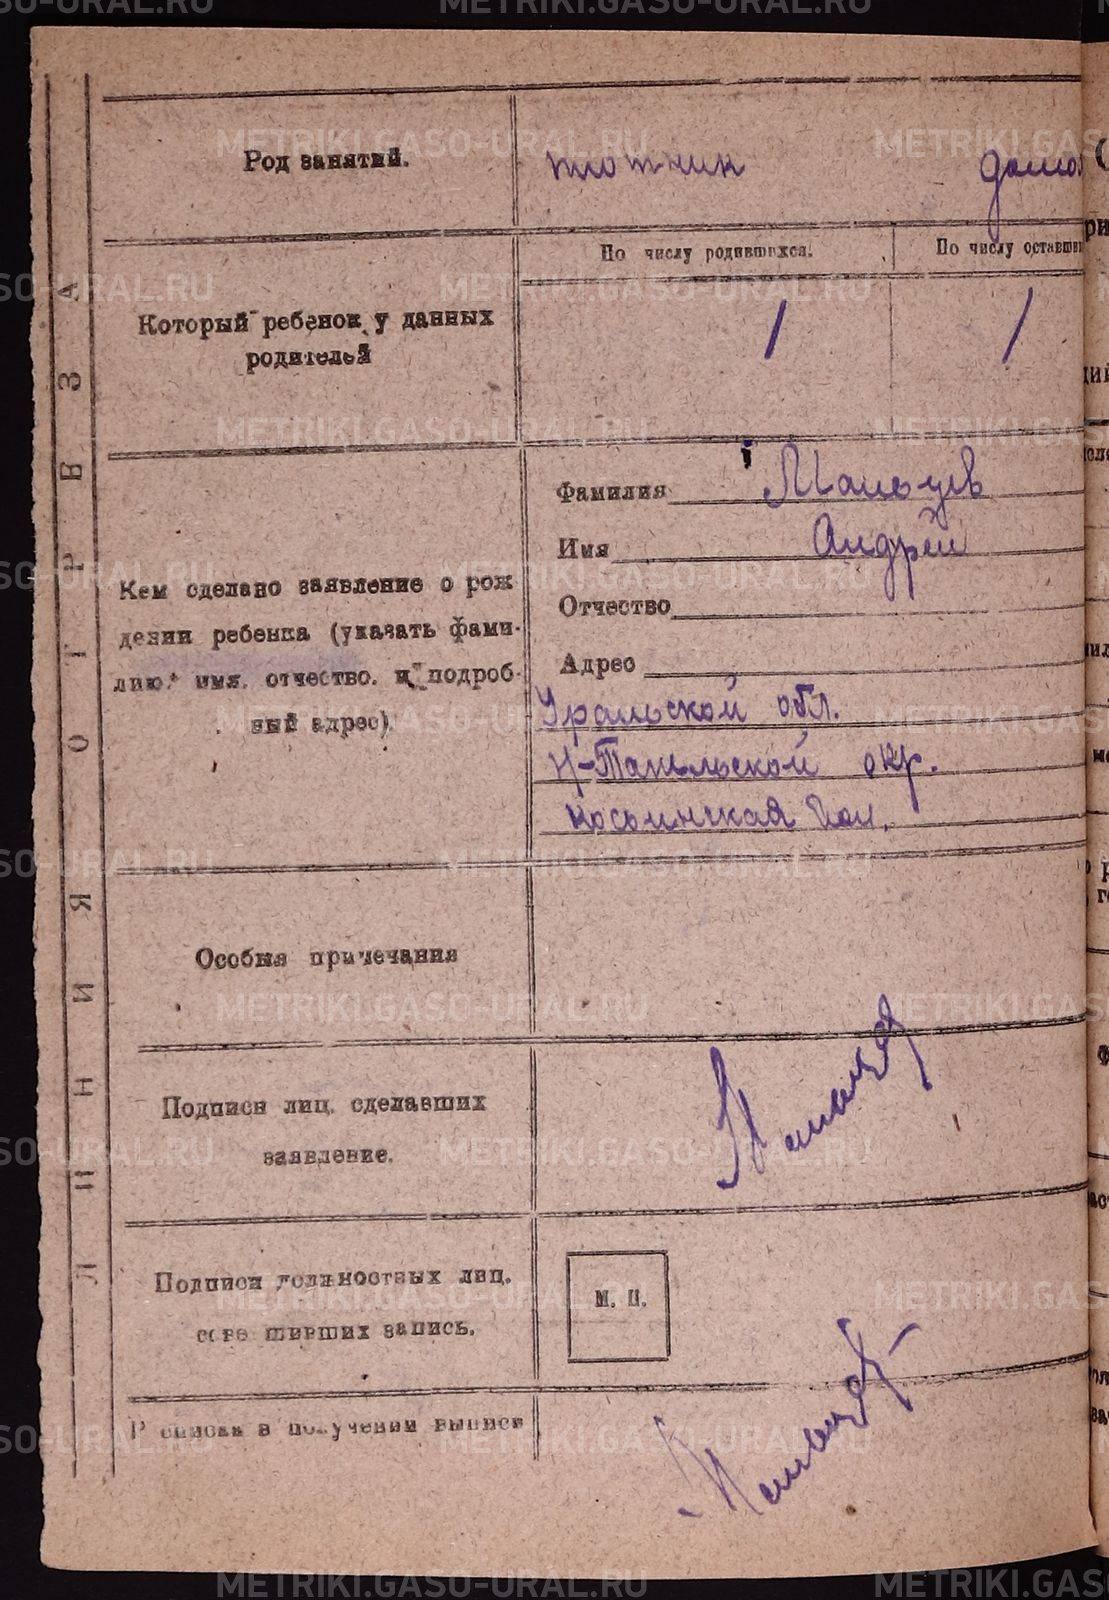 Род занятий.
плотник дома
По числу родившихся. По числу оставши
Который ребенок у данных
родителей
1 1
Кем сделано заявление о рож
дении ребенка (указать фами-
лию, имя, отчество, и подроб-
ный адрес).
Фамилия Мальцев
Имя Андрей
Отчество
Адрес
Уральской обл.
Н-Тагильской окр.
Особыя примечания
Подписи лиц, сделавших
заявление.
Мальцев
Подписи должностных лиц,
совершивших запись.
М. П.
Р списка в получении выписи
Мальцев
ЛИНИЯ ОТРЕЗА
METRIKI.GASO-URAL.RU